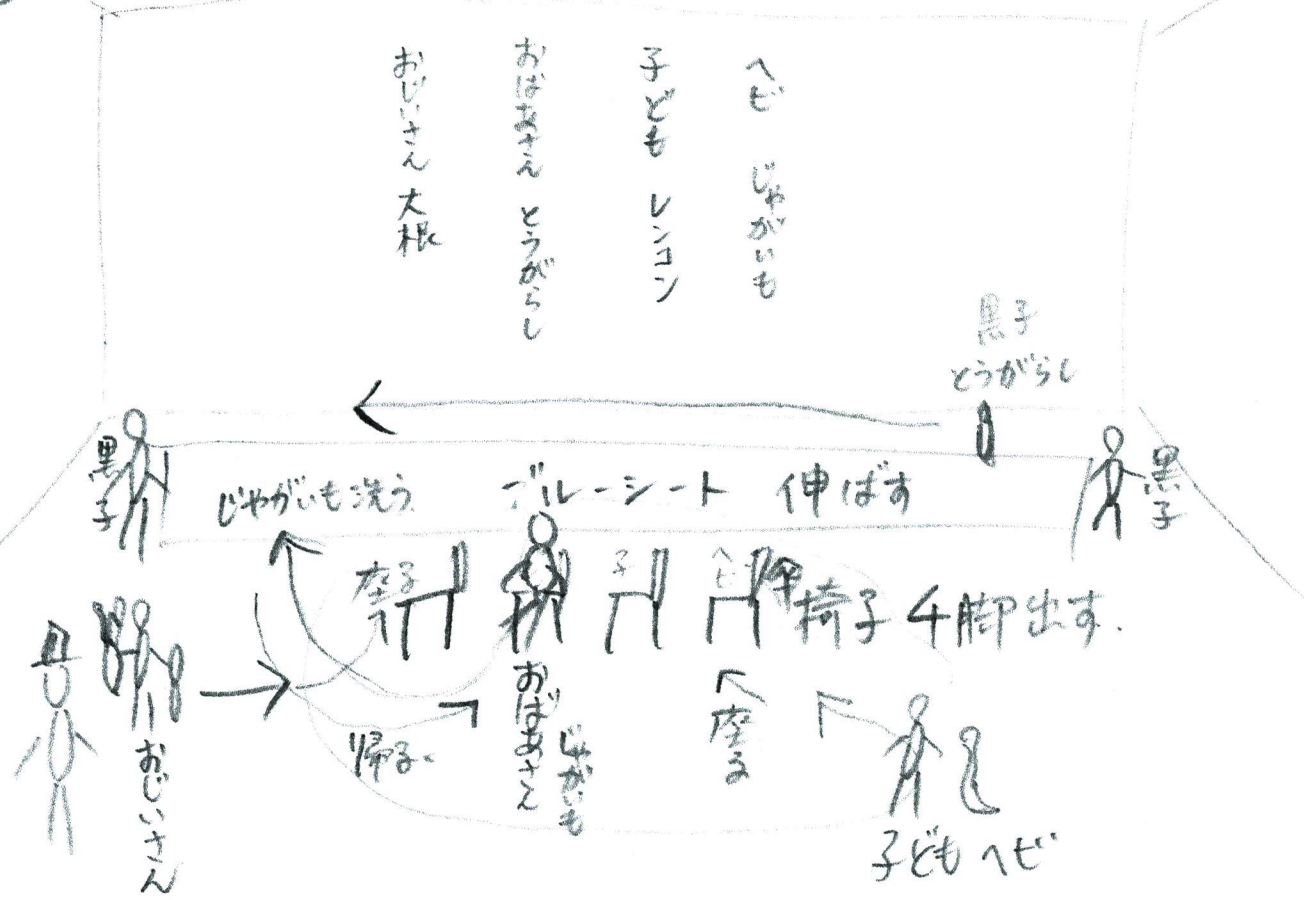 ヘビ じゃがいも
子ども レンコン
おばあさん とうがらし
おじいさん 大根
黒子
とうがらし
黒子
じゃがいも洗う
ブルーシート 伸ばす
黒子
座る
子
ヘビ
椅子 4脚出す.
おばあさん
じゃがいも
座る
帰る。
おじいさん
子ども ヘビ